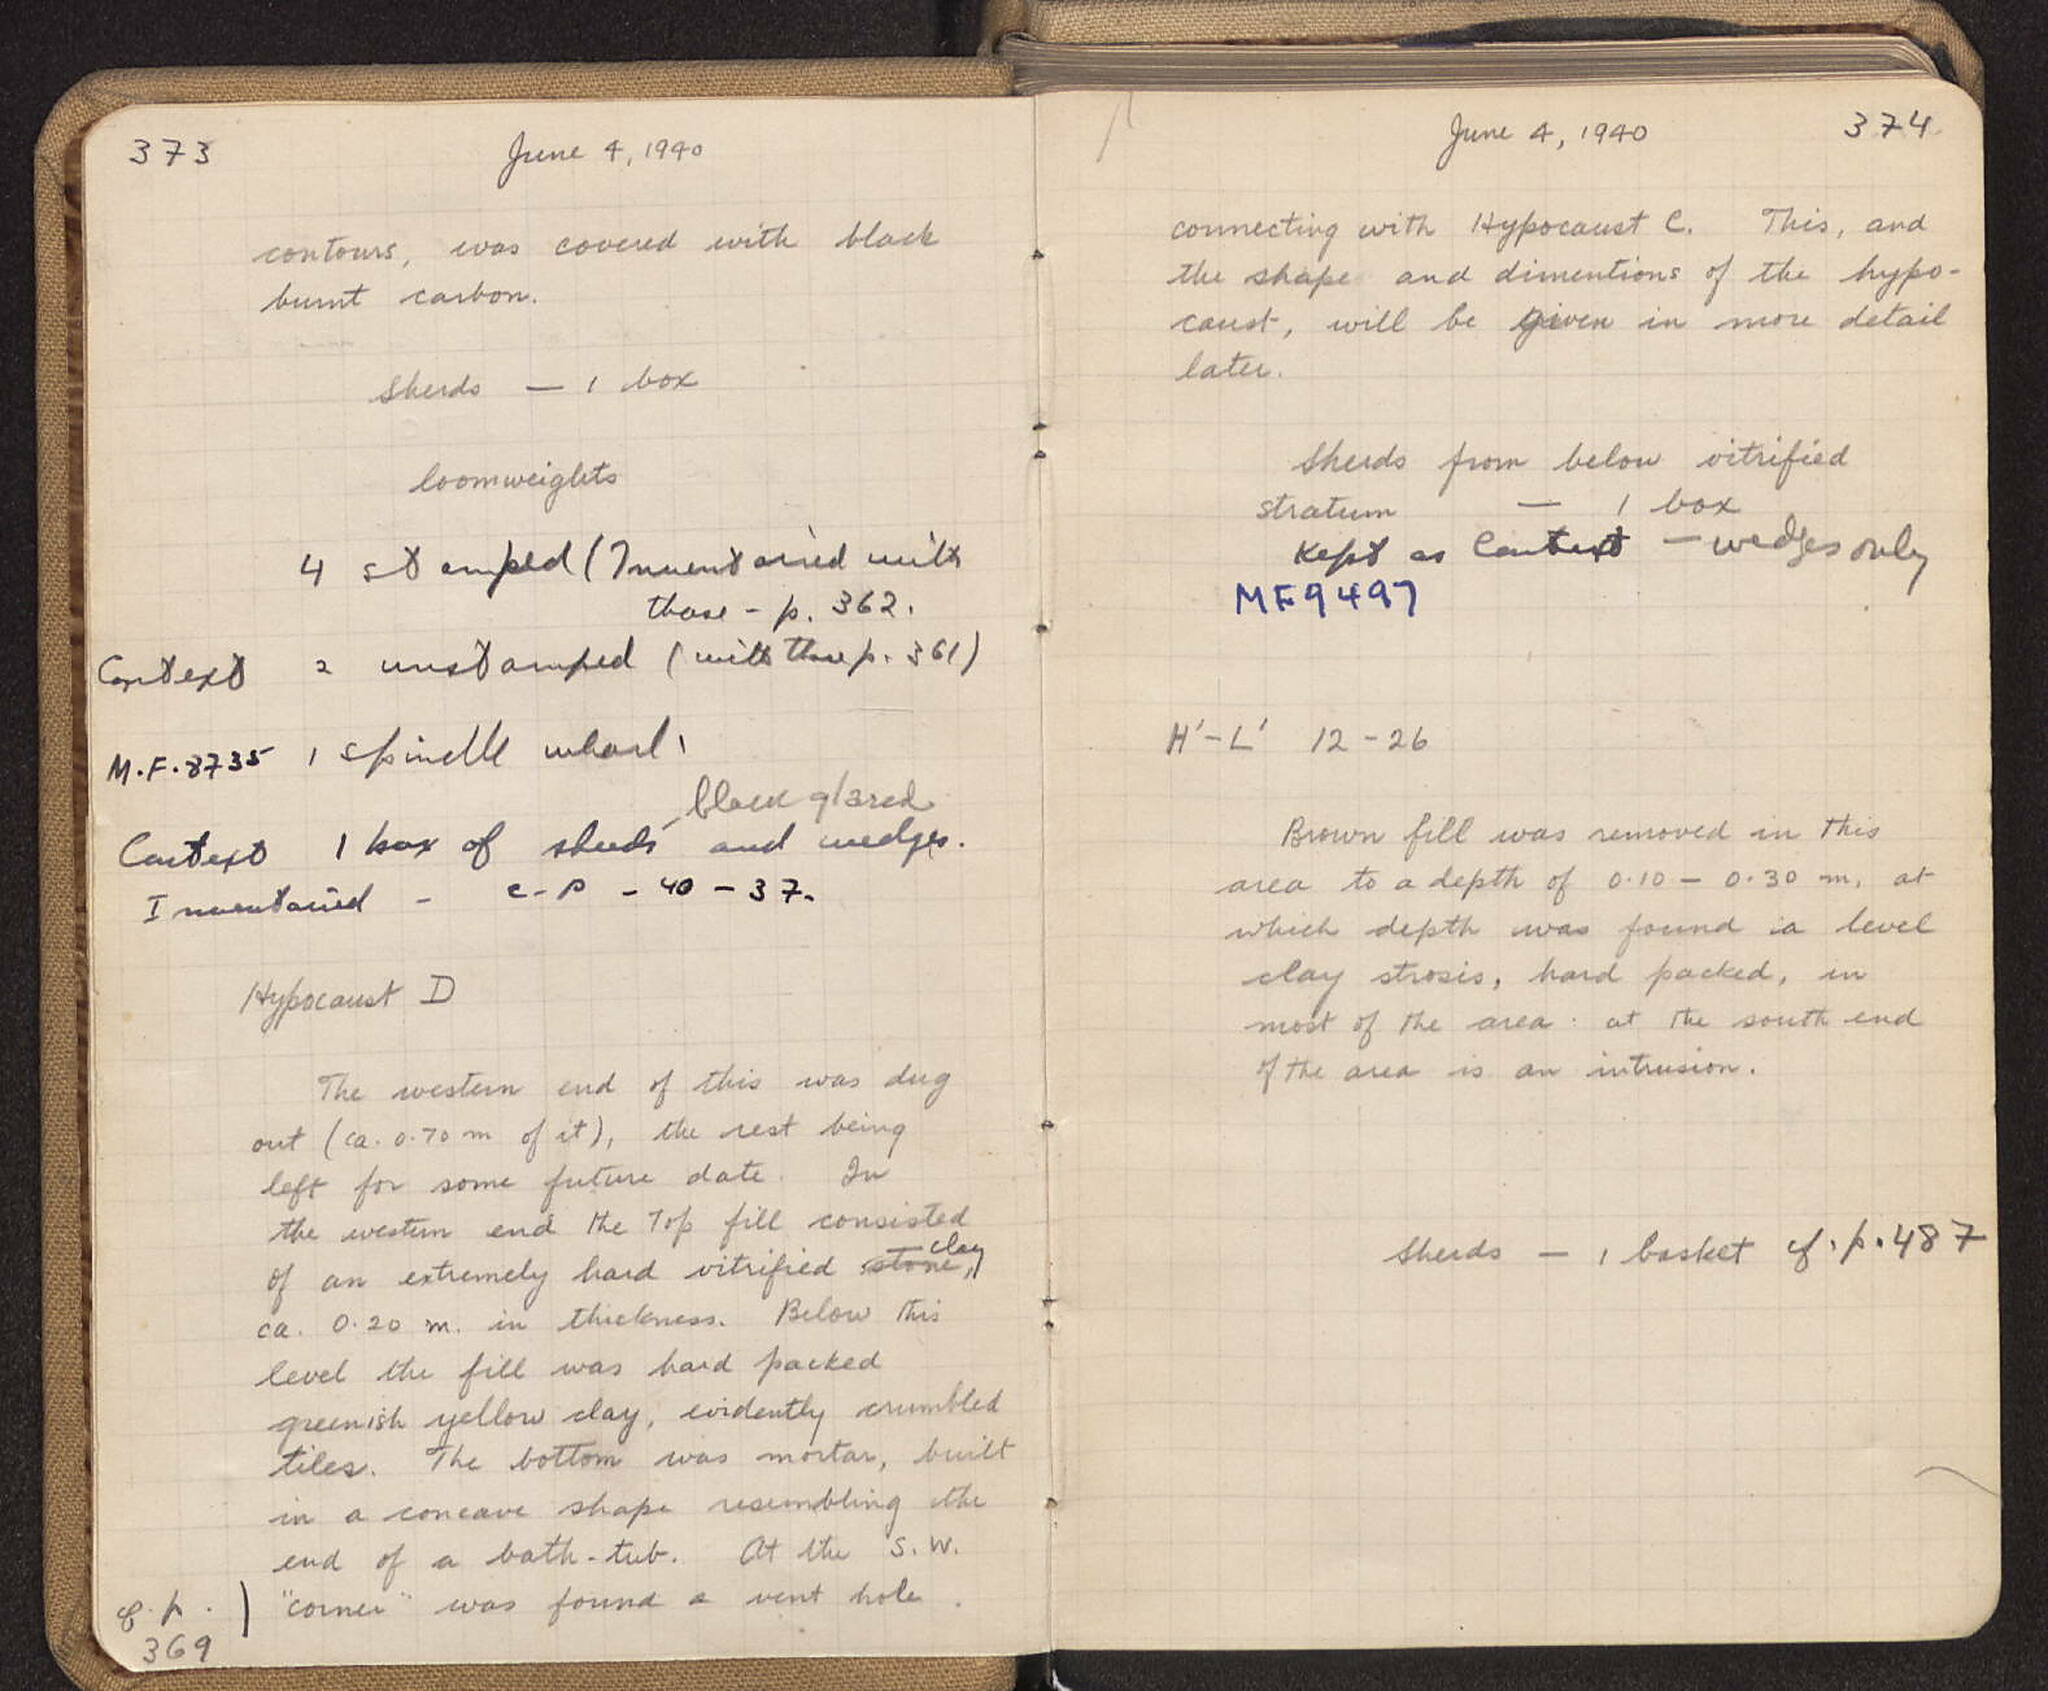 373
June 4, 1940
contours, was covered with black
burnt carbon.
Sherds — 1 box
loomweights
4 stamped (Inventoried with
those - p. 362.
Context 2 unstamped (with those p. 361)
M.F. 8735 1 spindle whorl
black glazed
Context 1 box of sherds and wedges.
Inventoried - C-P - 40 - 37.
Hypocaust D
The western end of this was dug
out (ca. 0.70 m of it), the rest being
left for some future date. In
the western end the top fill consisted
clay
of an extremely hard vitrified stone,
ca. 0.20 m. in thickness. Below this
level the fill was hard packed
greenish yellow clay, evidently crumbled
tiles. The bottom was mortar, built
in a concave shape resembling the
end of a bath-tub. At the S.W.
"corner" was found a vent hole.
cf. p.
369
June 4, 1940
374
connecting with Hypocaust C. This, and
the shape and dimentions of the hypo-
caust, will be given in more detail
later.
Sherds from below vitrified
stratum — 1 box
Kept as Context — wedges only
MF 9497
H'-L' 12-26
Brown fill was removed in this
area to a depth of 0.10 - 0.30 m. at
which depth was found a level
clay strosis, hard packed, in
most of the area: at the south end
of the area is an intrusion.
Sherds — 1 basket cf. p. 487